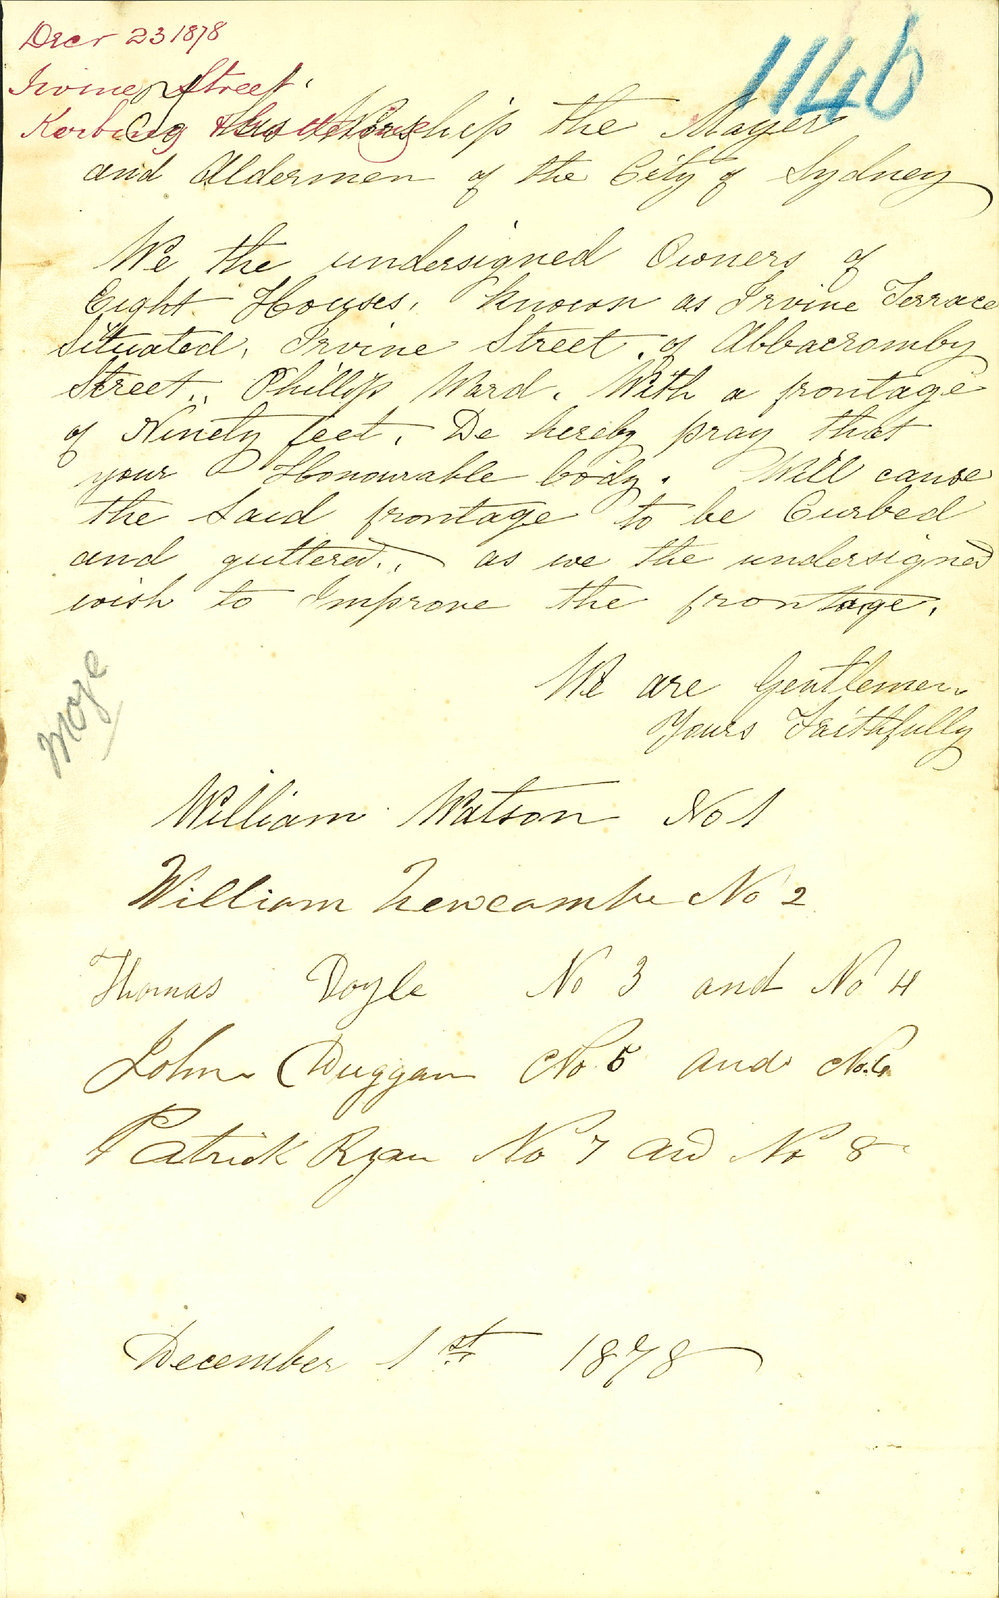 Decr 23 1878
1146
Irvine Street
Kerbing & Guttering
To His Worship the Mayer
and Aldermen of the City of Sydney
We the undersigned Owners of
Eight Houses, known as Irvine Terrace
Situated, Irvine Street, of Abbacromby
Street,, Phillip Ward. With a frontage
of Ninety feet, De hereby pray that
your Honourable body. Will cause
the said frontage to be Curbed
and guttered., as we the undersigned
wish to Improve the frontage.
We are Gentlemen
Yours Faithfully
William Watson No 1
William Newcambe No 2
Thomas Doyle No 3 and No 4
John Duggan No 5 and No 6
Patrick Ryan No 7 and No 8
December 1st 1878